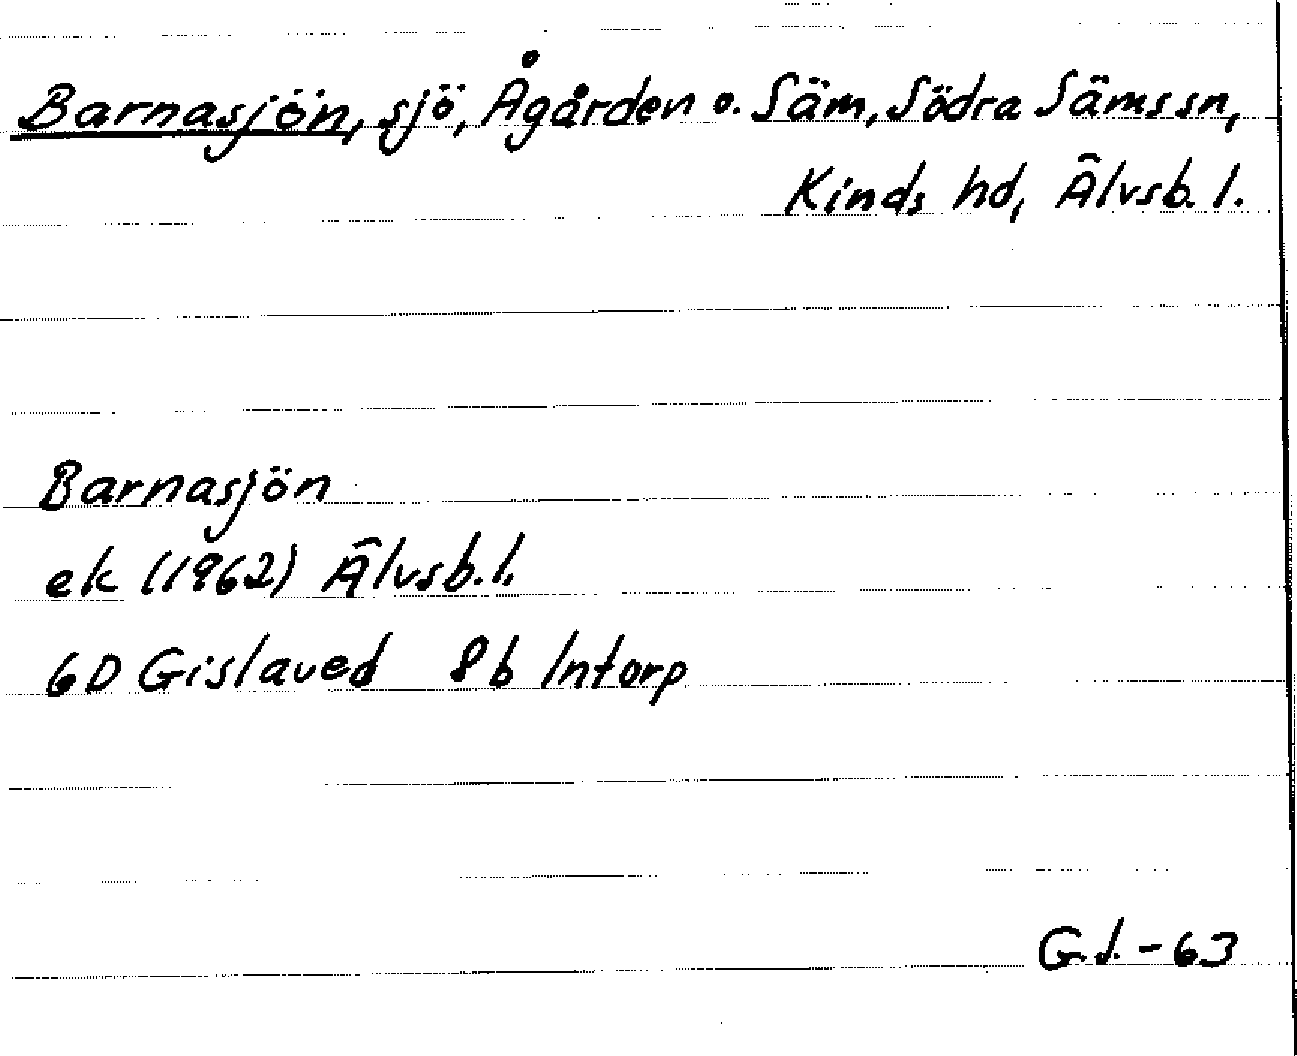 Barnasjön, sjö, Ågården o. Säm, Södra Säms sn,
Kinds hd, Älvsb. l.
Barnasjön
ek (1962) Älvsb. l.
6D Gislaved 8b Intorp
G.l. - 63